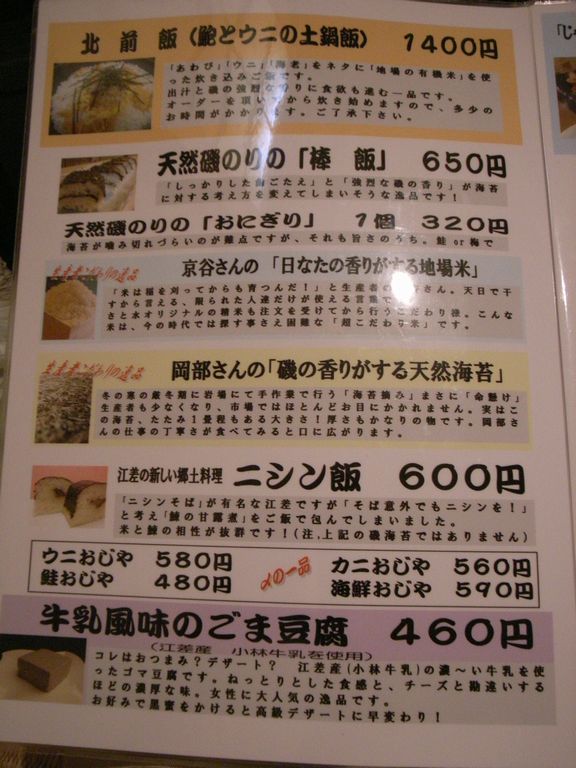 北前飯(鮑とウニの土鍋飯) 1400円
「あわび」「ウニ」「海老」をネタに「地場の有機米」を使
った炊き込みご飯です。
出汁と磯の強烈な香りに食欲も進む一品です。
オーダーを頂いてから炊き始めますので、多少の
お時間がかかります。ご了承下さい。
天然磯のりの「棒 飯」 650円
「しっかりした歯ごたえ」と「強烈な磯の香り」が海苔
に対する考え方を変えてしまいそうな逸品です!
天然磯のりの「おにぎり」 1個 320円
海苔が噛み切れづらいのが難点ですが、それも旨さのうち。鮭 or 梅で
生産者こだわりの逸品
京谷さんの「日なたの香りがする地場米」
「米は稲を刈ってからも育つんだ!」と生産者の京谷さん。天日で干
すから言える、限られた人達だけが使える言葉です。
さと水オリジナルの精米も注文を受けてから行うこだわり様。こんな
米は、今の時代では探す事さえ困難な「超こだわり米」です。
生産者こだわりの逸品
岡部さんの「磯の香りがする天然海苔」
冬の寒の厳冬期に岩場にて手作業で行う「海苔摘み」まさに「命懸け」
生産者も少なくなり、市場ではほとんどお目にかかれません。実はこ
の海苔、たたみ1畳程もある大きさ!厚さもかなりの物です。岡部さ
んの仕事の丁寧さが食べてみると口に広がります。
江差の新しい郷土料理 ニシン飯 600円
「ニシンそば」が有名な江差ですが「そば意外でもニシンを!」
と考え「鰊の甘露煮」をご飯で包んでしまいました。
米と鰊の相性が抜群です!(注,上記の磯海苔ではありません)
ウニおじや 580円
鮭おじや 480円
〆の一品
カニおじや 560円
海鮮おじや 590円
牛乳風味のごま豆腐 460円
(江差産 小林牛乳を使用)
コレはおつまみ?デザート? 江差産(小林牛乳)の濃〜い牛乳を使
ったゴマ豆腐です。ねっとりとした食感と、チーズと勘違いする
ほどの濃厚な味。女性に大人気の逸品です。
お好みで黒蜜をかけると高級デザートに早変わり!
「じゃ